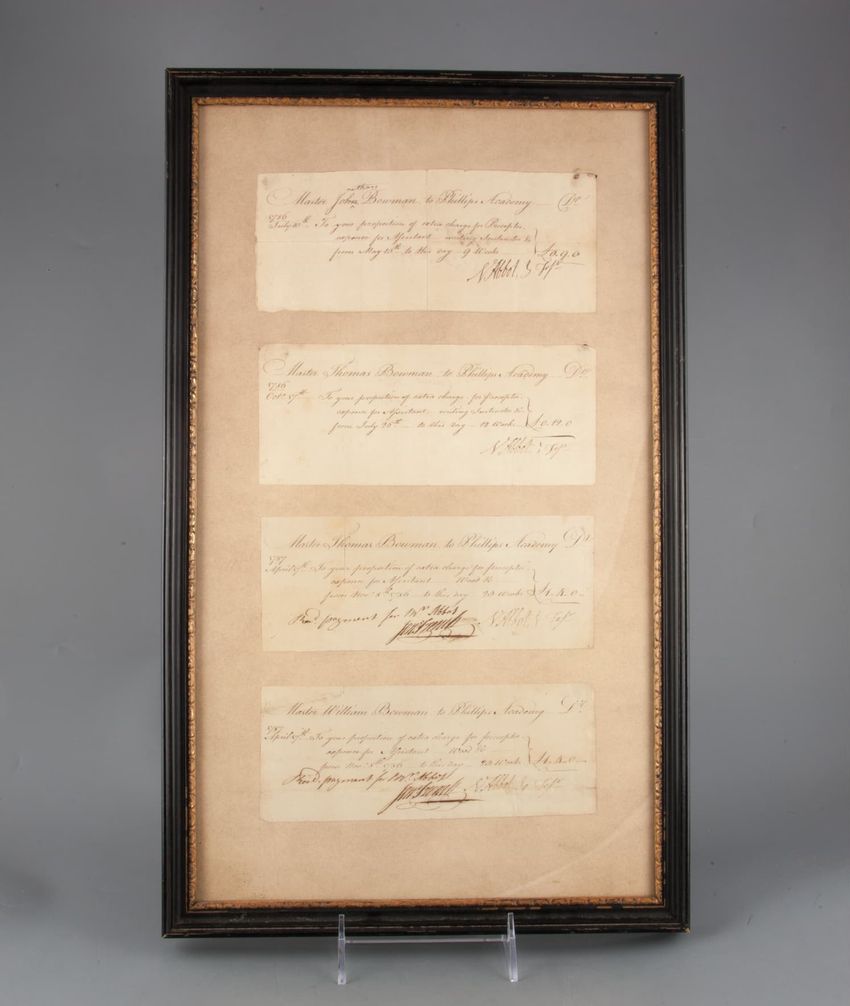 Master John Bowman to Phillips Academy Dr.
1786
July 18th To your proportion of extra charge for Preceptor
expence for Assistant writing Instructor &c
from May 18th to this day 9 Weeks £0.9.0
N. Abbot
Master Thomas Bowman to Phillips Academy Dr.
1786
Octr. 17th To your proportion of extra charge for preceptor
expence for Assistant writing Instructor &c
from July 26th to this day 12 Weeks £0.12.0
N. Abbot
Master Thomas Bowman to Phillips Academy Dr.
1787
April 17th To your proportion of extra charge for preceptor
expence for Assistant Wood &c
from Novr. 8th 1786 to this day £1.4.0
Recd. payment for Mr. Abbot
N. Abbot
Master William Bowman to Phillips Academy Dr.
April 17th To your proportion of extra charge for preceptor
expence for Assistant Wood &c
from Novr. 8th 1786 to this day £1.4.0
Recd. payment for Mr. Abbot
N. Abbot